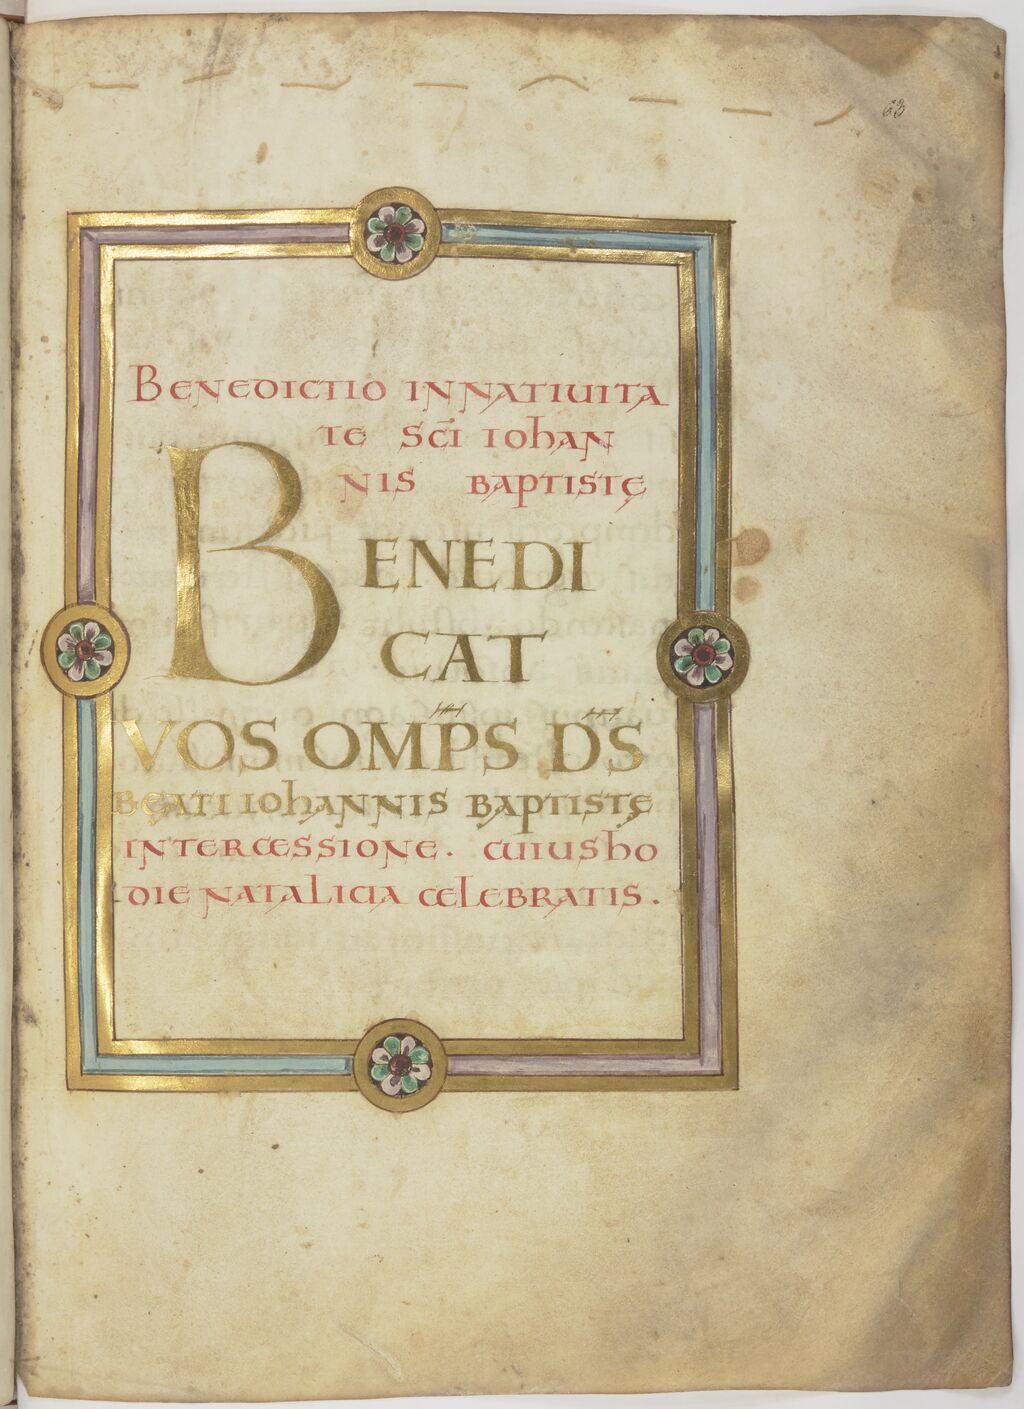 63
BENEDICTIO IN NATIUITA
TE SCI IOhAN
NIS BAPTISTĘ
BENEDI
CAT
VOS OMPS DS
BEATI IOhANNIS BAPTISTĘ
INTERCESSIONE. CUIUS hO
DIE NATALICIA CELEBRATIS.